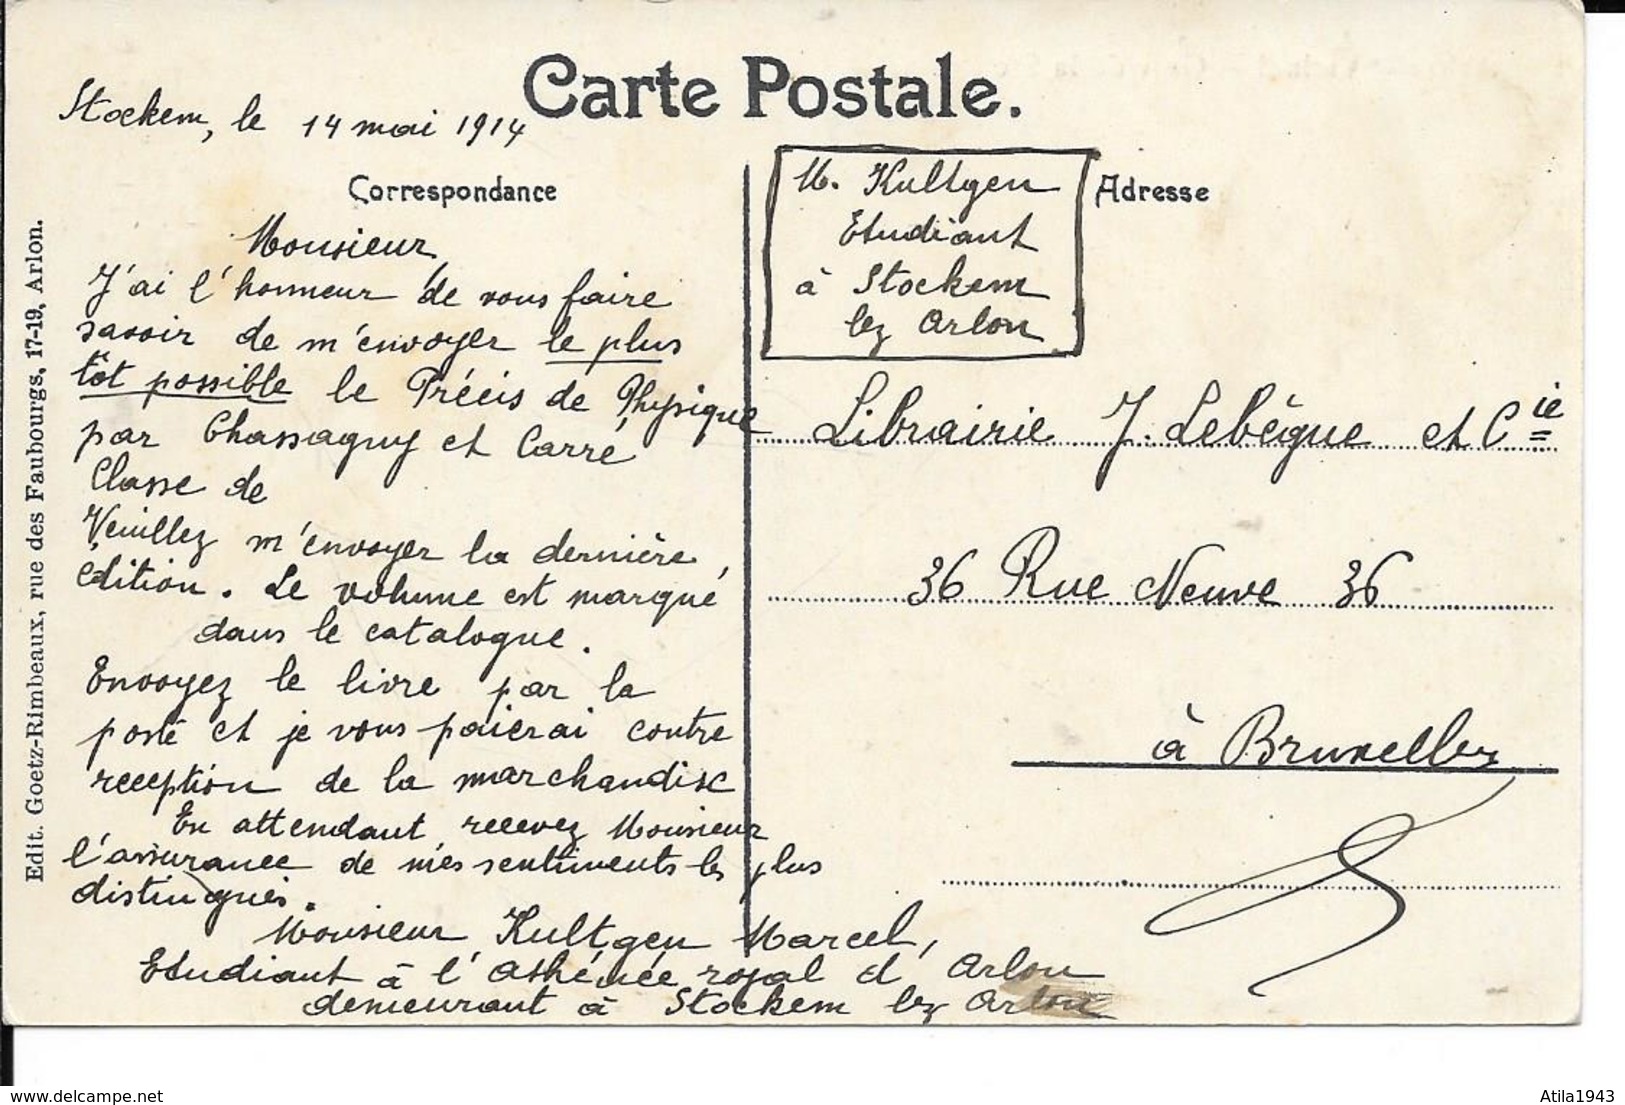 Carte Postale.
Stockem, le 14 mai 1914
Correspondance
Adresse
M. Kultgen
Etudiant
à Stockem
lez Arlon
Monsieur,
J'ai l'honneur de vous faire
savoir de m'envoyer le plus
tôt possible le Précis de Physique
par Chassagny et Carré
Classe de
Veuillez m'envoyer la dernière
édition. Le volume est marqué
dans le catalogue.
Envoyez le livre par la
poste et je vous paierai contre
reception de la marchandise
En attendant recevez Monsieur
l'assurance de mes sentiments les plus
distingués.
Monsieur Kultgen Marcel,
Etudiant à l'Athénée royal d'Arlon
demeurant à Stockem lez Arlon
Librairie J. Lebègue et Cie
36 Rue Neuve 36
à Bruxelles
Edit. Goetz-Rimbeaux, rue des Faubourgs, 17-19, Arlon.
www.delcampe.net
Atila1943